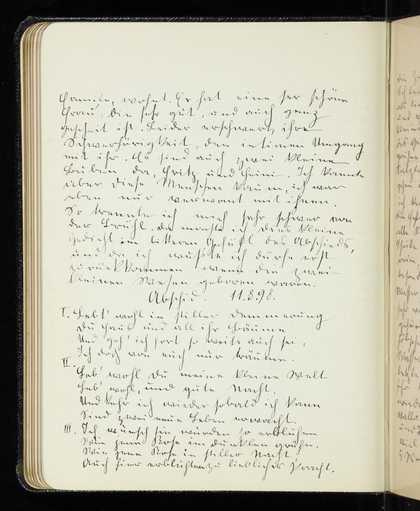 Famile, wohnt. Er hat eine ser schöne
Frau, die sehr gut, und auch ganz
gescheit ist. Leider erschwert ihre
Schwerhörigkeit, den intimen Umgang
mit ihr. Es sind auch zwei kleine
Buben da, Fritz und Heini. Ich kannte
aber diese Menschen kaum, ich war
eben nur verwant mit ihnen.
So trennte ich mich sehr schwer von
der Brühl, da machte ich dies kleine
Gedicht im bittern Gefühl des Abschieds,
und da ich wußte ich dürfe erst
zurückkommen wenn die zwei
kleinen Wesen geboren waren.
Abschied. 11.8.98.
I. Leb' wohl in stiller Dämmerung
Du Haus und all ihr Bäume
Und geh' ich fort so weit auch sei,
Ich doch von euch nur träume.
II.
Leb' wohl Du meine kleine Welt
Leb' wohl, und gute Nacht,
Und kehr ich wieder sobald ich kann
Sind zwei neue Leben erwacht.
III. Ich wünsch sie würden so erblühen
Wie jene Rose im dunklen grünen.
Wie jene Rose in stiller Nacht,
Auch hier erblühten zu lieblicher Pracht.